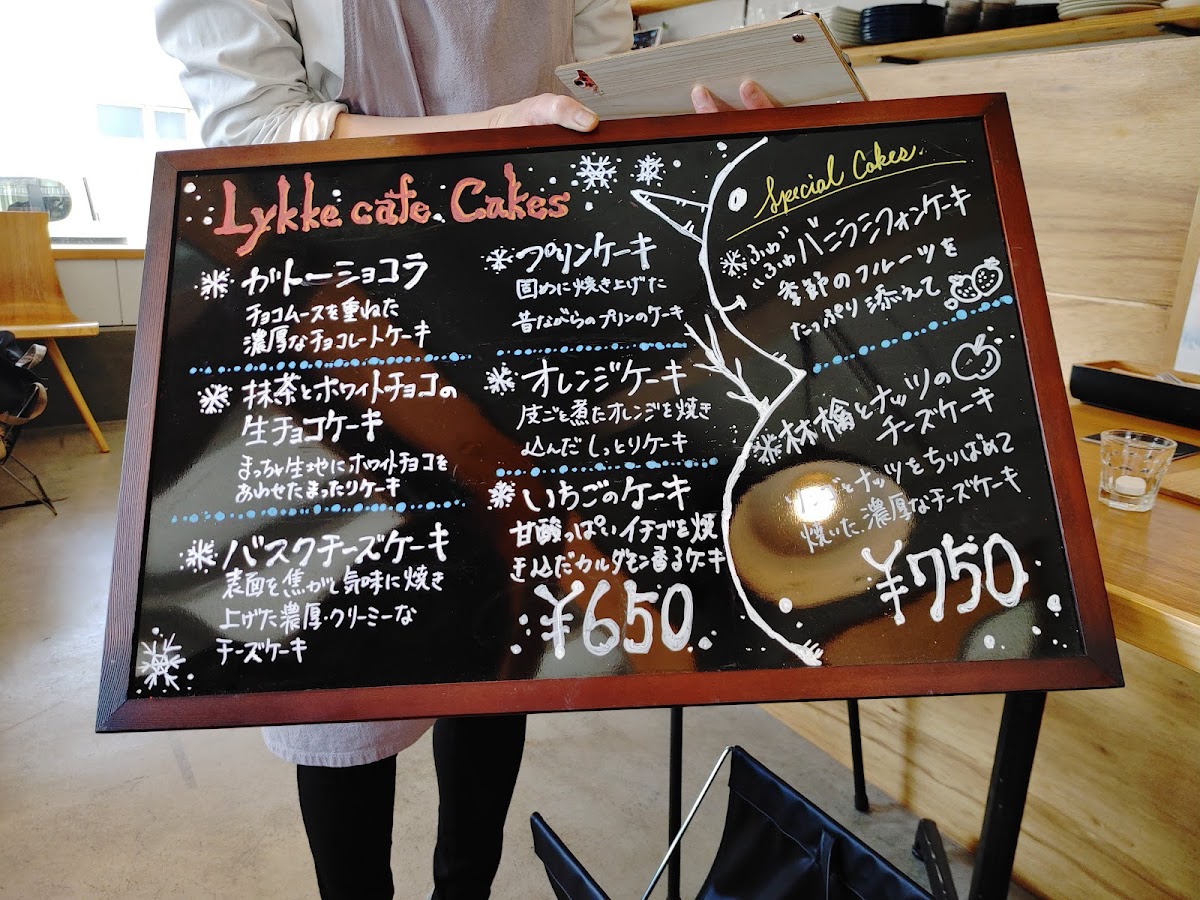 Lykke cafe Cakes
ガトーショコラ
チョコムースを重ねた
濃厚なチョコレートケーキ
抹茶とホワイトチョコの
生チョコケーキ
まっちゃ生地にホワイトチョコを
あわせたまったりケーキ
バスクチーズケーキ
表面を焦がし気味に焼き
上げた濃厚・クリーミーな
チーズケーキ
プリンケーキ
固めに焼き上げた
昔ながらのプリンのケーキ
オレンジケーキ
皮ごと煮たオレンジを焼き
込んだしっとりケーキ
いちごのケーキ
甘酸っぱいイチゴを焼
き込だカルダモン香るケーキ
¥650
Special Cakes
ふわふわバニラシフォンケーキ
季節のフルーツを
たっぷり添えて
林檎とナッツの
チーズケーキ
とナッツをちりばめて
焼いた、濃厚なチーズケーキ
¥750